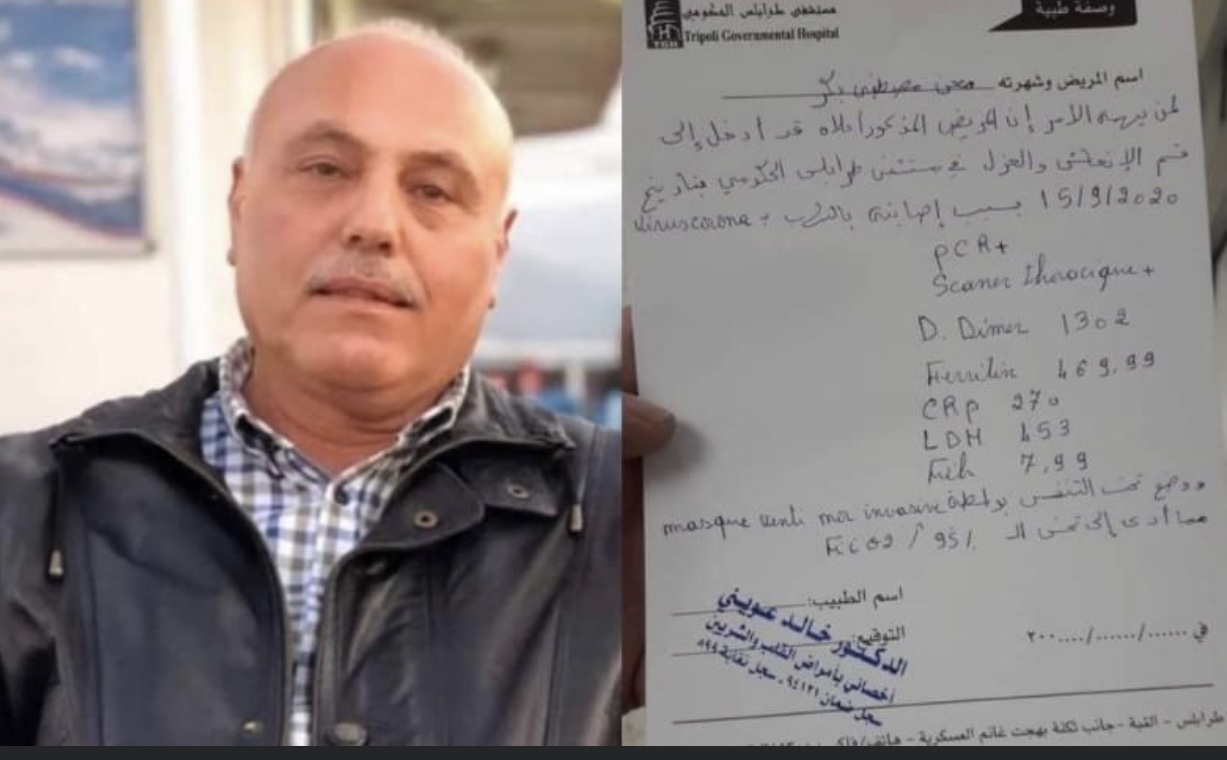 مستشفى طرابلس الحكومي
Tripoli Governmental Hospital
وصفة طبية
اسم المريض وشهرته
لمن يهمه الأمر إن المريض المذكور أعلاه قد أدخل إلى
قسم الإنعاش والعزل في مستشفى طرابلس الحكومي بتاريخ
15/9/2020 بسبب إصابته بالتهاب
PCR+
Scaner thoracique +
D. Dimer 1302
Ferritin 469,99
CRP 270
LDH 453
7,99
ووضع تحت التنفس بواسطة masque venti non invasive
مما أدى إلى تحسن الـ FiO2 / 95%
اسم الطبيب:
التوقيع:
الدكتور خالد عويني
أخصائي بأمراض القلب والشرايين
سجل ضمان ٩٤١٢١ - سجل نقابة ٨٩٩
في ....../....../....٢٠٠
طرابلس - القبة - جانب ثكنة بهجت غانم العسكرية -